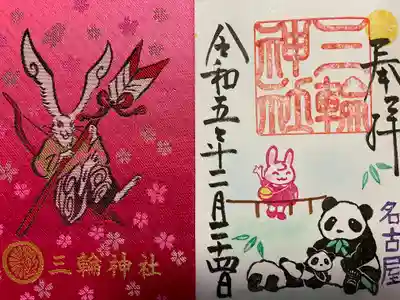 三輪神社
奉拝
名古屋
三輪
神社
令和五年二月二十四日